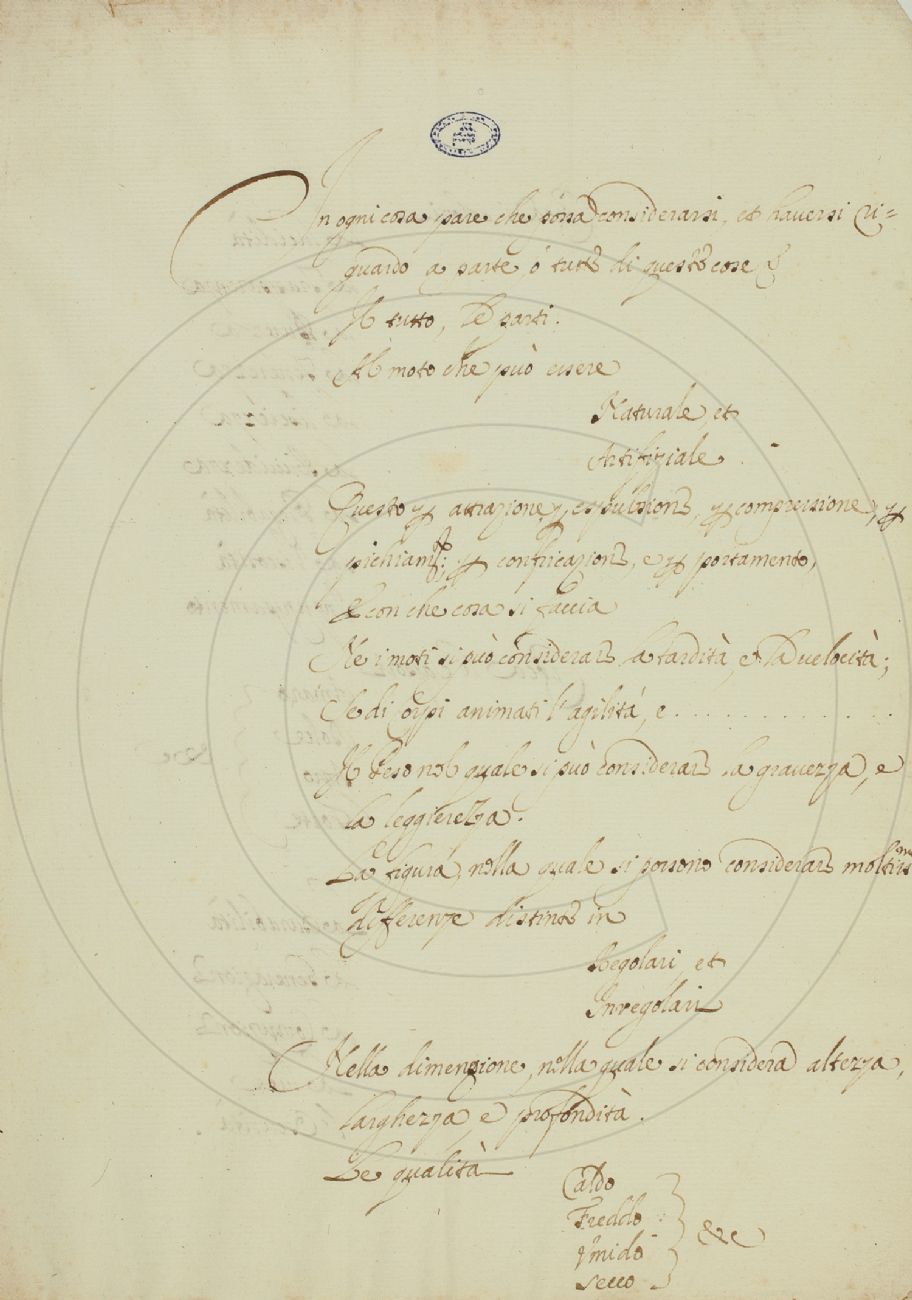 In ogni cosa pare che possa considerarsi, et haversi ri=
guardo a parte ò tutte di queste cose
Il tutto, Le parti.
Il moto che può essere
Naturale, et
Artifiziale.
Questo per attrazione, per espulsione, per compressione, per
pichiamto; per confricazione, e per portamento,
Et con che cosa si faccia
Ne i moti si può considerare la tardità, e la velocità;
Se di corpi animati l'agilità, e . . . . . . . . . . . .
Il Peso nel quale si può considerare la gravezza, e
la leggierezza.
La figura, nella quale si possono considerare moltissime
differenze distinte in
Regolari, et
Inregolari
Nella dimenzione, nella quale si considera altezza,
larghezza, e profondità.
Le qualità
Caldo
Freddo
Umido
secco